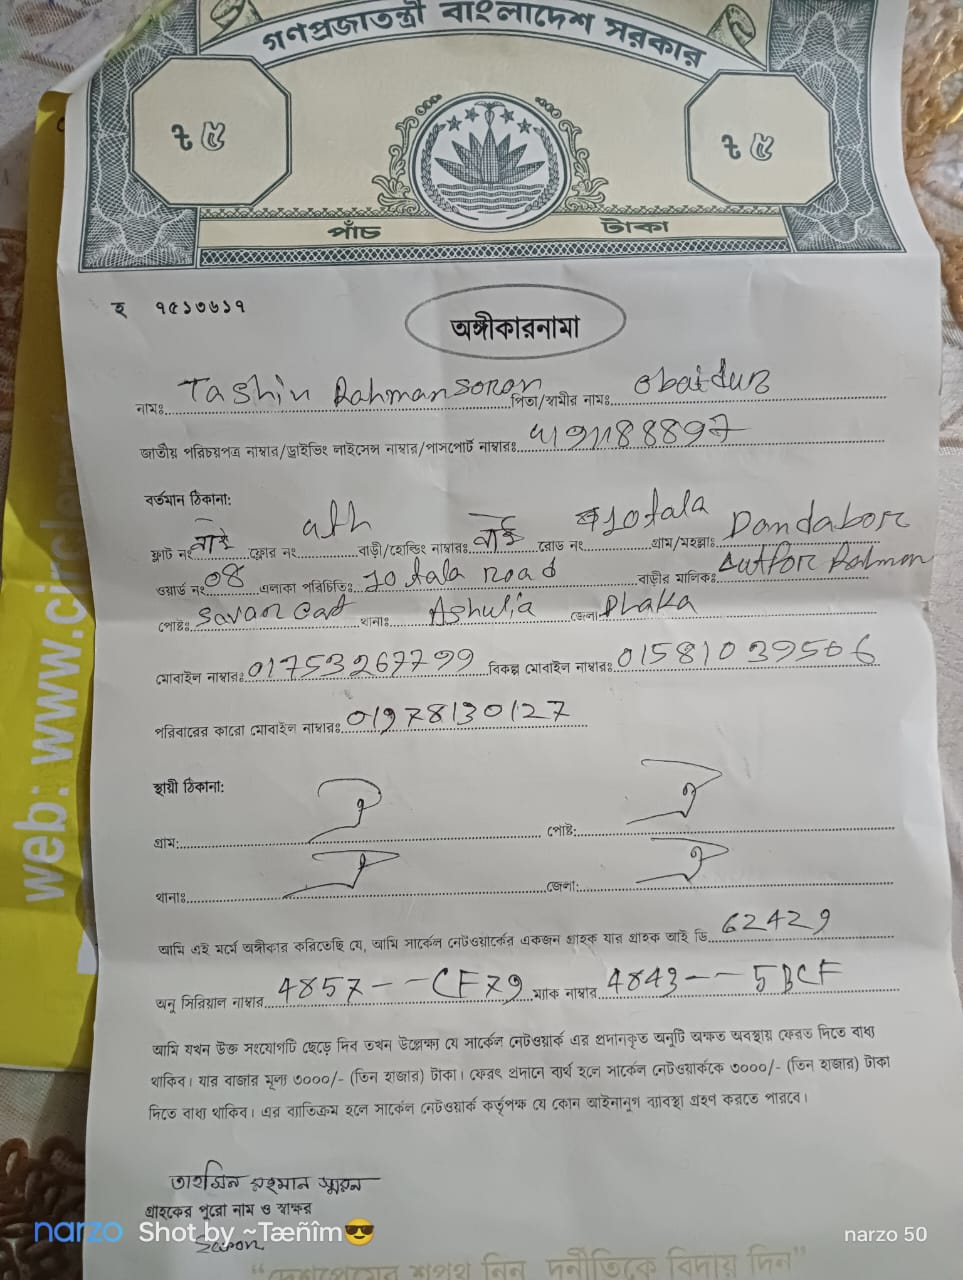 গণপ্রজাতন্ত্রী বাংলাদেশ সরকার
৳ ৫ ৳ ৫
পাঁচ টাকা
হ ৭৫১৩৬১৭
অঙ্গীকারনামা
নামঃ Tashin Rahman Soron পিতা/স্বামীর নামঃ Obaidur
জাতীয় পরিচয়পত্র নাম্বার/ড্রাইভিং লাইসেন্স নাম্বার/পাসপোর্ট নাম্বারঃ
বর্তমান ঠিকানা:
ফ্লাট নং নাই ফ্লোর নং বাড়ী/হোল্ডিং নাম্বারঃ নাই রোড নং 10 tala গ্রাম/মহল্লাঃ Dandabor
ওয়ার্ড নং 08 এলাকা পরিচিতিঃ 10 tala road বাড়ীর মালিকঃ Rahman
পোষ্টঃ Savar Cant থানাঃ Ashulia জেলা Dhaka
মোবাইল নাম্বারঃ 01753267799 বিকল্প মোবাইল নাম্বারঃ 01581039506
পরিবারের কারো মোবাইল নাম্বারঃ 01978130127
স্থায়ী ঠিকানা:
গ্রাম: পোষ্ট:
থানাঃ জেলা:
আমি এই মর্মে অঙ্গীকার করিতেছি যে, আমি সার্কেল নেটওয়ার্কের একজন গ্রাহক যার গ্রাহক আই ডি 62429
অনু সিরিয়াল নাম্বার 4857--CF79 ম্যাক নাম্বার 4843--5BCF
আমি যখন উক্ত সংযোগটি ছেড়ে দিব তখন উল্লেক্ষ্য যে সার্কেল নেটওয়ার্ক এর প্রদানকৃত অনুটি অক্ষত অবস্থায় ফেরত দিতে বাধ্য
থাকিব। যার বাজার মূল্য ৩০০০/- (তিন হাজার) টাকা। ফেরৎ প্রদানে ব্যর্থ হলে সার্কেল নেটওয়ার্ককে ৩০০০/- (তিন হাজার) টাকা
দিতে বাধ্য থাকিব। এর ব্যাতিক্রম হলে সার্কেল নেটওয়ার্ক কর্তৃপক্ষ যে কোন আইনানুগ ব্যাবস্থা গ্রহণ করতে পারবে।
তাহসিন রহমান স্মরন
গ্রাহকের পুরো নাম ও স্বাক্ষর
Soron
"দেশপ্রেমের শপথ নিন দুর্নীতিকে বিদায় দিন"
web: www.circlenet
narzo Shot by ~Tæñîm😎 narzo 50